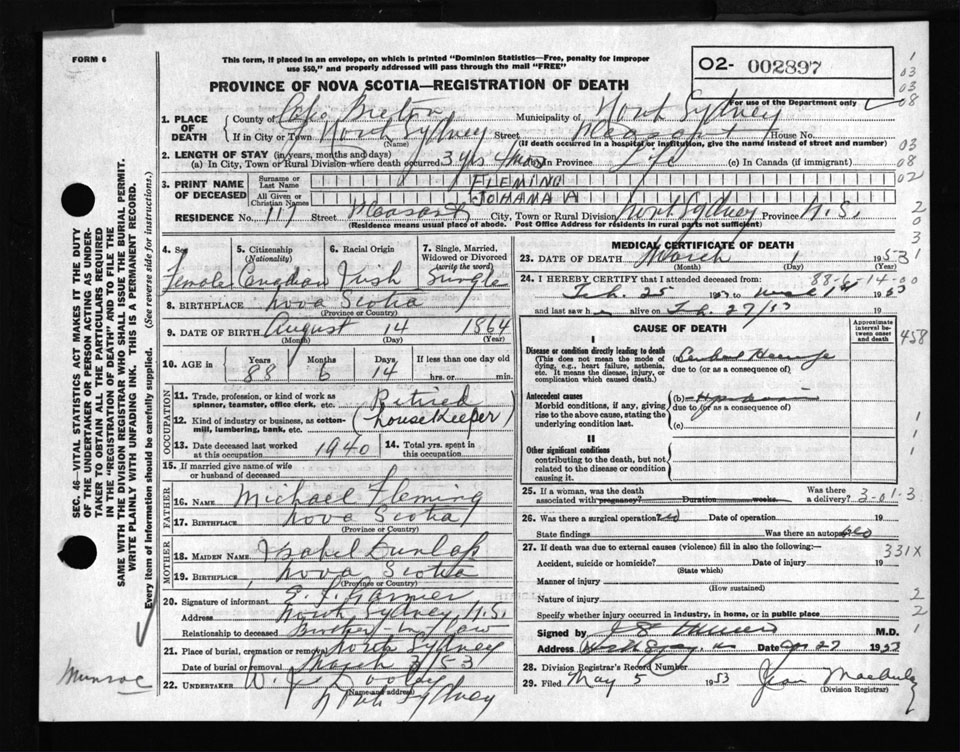 FORM 6
This form, if placed in an envelope, on which is printed "Dominion Statistics—Free, penalty for improper
use $50," and properly addressed will pass through the mail "FREE"
PROVINCE OF NOVA SCOTIA—REGISTRATION OF DEATH
02- 002897
For use of the Department only
1. PLACE OF DEATH
County of Cape Breton Municipality of North Sydney
If in City or Town North Sydney Street Pleasant House No.
(Name) (If death occurred in a hospital or institution, give the name instead of street and number)
2. LENGTH OF STAY (in years, months and days)
(a) In City, Town or Rural Division where death occurred 3 yrs 4 mos (b) In Province Life (c) In Canada (if immigrant)
3. PRINT NAME OF DECEASED
Surname or Last Name FLEMING
All Given or Christian Names JOHANA A
RESIDENCE No. 117 Street Pleasant City, Town or Rural Division North Sydney Province N.S.
(Residence means usual place of abode. Post Office Address for residents in rural parts not sufficient)
4. Sex 5. Citizenship (Nationality) 6. Racial Origin 7. Single, Married, Widowed or Divorced (write the word)
Female Canadian Irish Single
8. BIRTHPLACE Nova Scotia
(Province or Country)
9. DATE OF BIRTH August 14 1864
(Month) (Day) (Year)
10. AGE in Years Months Days If less than one day old
88 6 14 hrs. or min.
OCCUPATION
11. Trade, profession, or kind of work as spinner, teamster, office clerk, etc. Retired
12. Kind of industry or business, as cotton-mill, lumbering, bank, etc. (Housekeeper)
13. Date deceased last worked at this occupation 1940 14. Total yrs. spent in this occupation
15. If married give name of wife or husband of deceased
FATHER
16. NAME Michael Fleming
17. BIRTHPLACE Nova Scotia
(Province or Country)
MOTHER
18. MAIDEN NAME Isabel Dunlap
19. BIRTHPLACE Nova Scotia
(Province or Country)
20. Signature of informant
Address North Sydney, N.S.
Relationship to deceased Brother in law
21. Place of burial, cremation or removal North Sydney
Date of burial or removal March 3/53
22. UNDERTAKER W. J. Dooley
(Name and address)
North Sydney
MEDICAL CERTIFICATE OF DEATH
23. DATE OF DEATH March 1 1953
(Month) (Day) (Year)
88-6-14-00
24. I HEREBY CERTIFY that I attended deceased from:
Feb. 25 1953 to March 1st 1953
and last saw h alive on Feb. 27/53
CAUSE OF DEATH
Approximate interval between onset and death
I
Disease or condition directly leading to death
(This does not mean the mode of dying, e.g., heart failure, asthenia, etc. It means the disease, injury, or complication which caused death.)
(a)
due to (or as a consequence of)
Antecedent causes
Morbid conditions, if any, giving rise to the above cause, stating the underlying condition last.
(b)
due to (or as a consequence of)
(c)
II
Other significant conditions
contributing to the death, but not related to the disease or condition causing it.
25. If a woman, was the death associated with pregnancy? Duration weeks. Was there a delivery?
26. Was there a surgical operation? no Date of operation 19
State findings Was there an autopsy? No
27. If death was due to external causes (violence) fill in also the following:—
Accident, suicide or homicide? Date of injury 19
(State which)
Manner of injury
(How sustained)
Nature of injury
Specify whether injury occurred in industry, in home, or in public place
Signed by M.D.
Address
28. Division Registrar's Record Number
29. Filed May 5 1953 Jean
(Division Registrar)
SEC. 46—VITAL STATISTICS ACT MAKES IT THE DUTY
OF THE UNDERTAKER OR PERSON ACTING AS UNDER-
TAKER TO OBTAIN ALL THE PARTICULARS REQUIRED
IN THE "REGISTRATION OF DEATH" AND TO FILE THE
SAME WITH THE DIVISION REGISTRAR WHO SHALL ISSUE THE BURIAL PERMIT.
WRITE PLAINLY WITH UNFADING INK. THIS IS A PERMANENT RECORD.
Every item of Information should be carefully supplied. (See reverse side for instructions.)
Munroe
1
03
03
08
03
08
02
2
0
3
1
458
1
1
1
3-01-3
331X
2
2
1